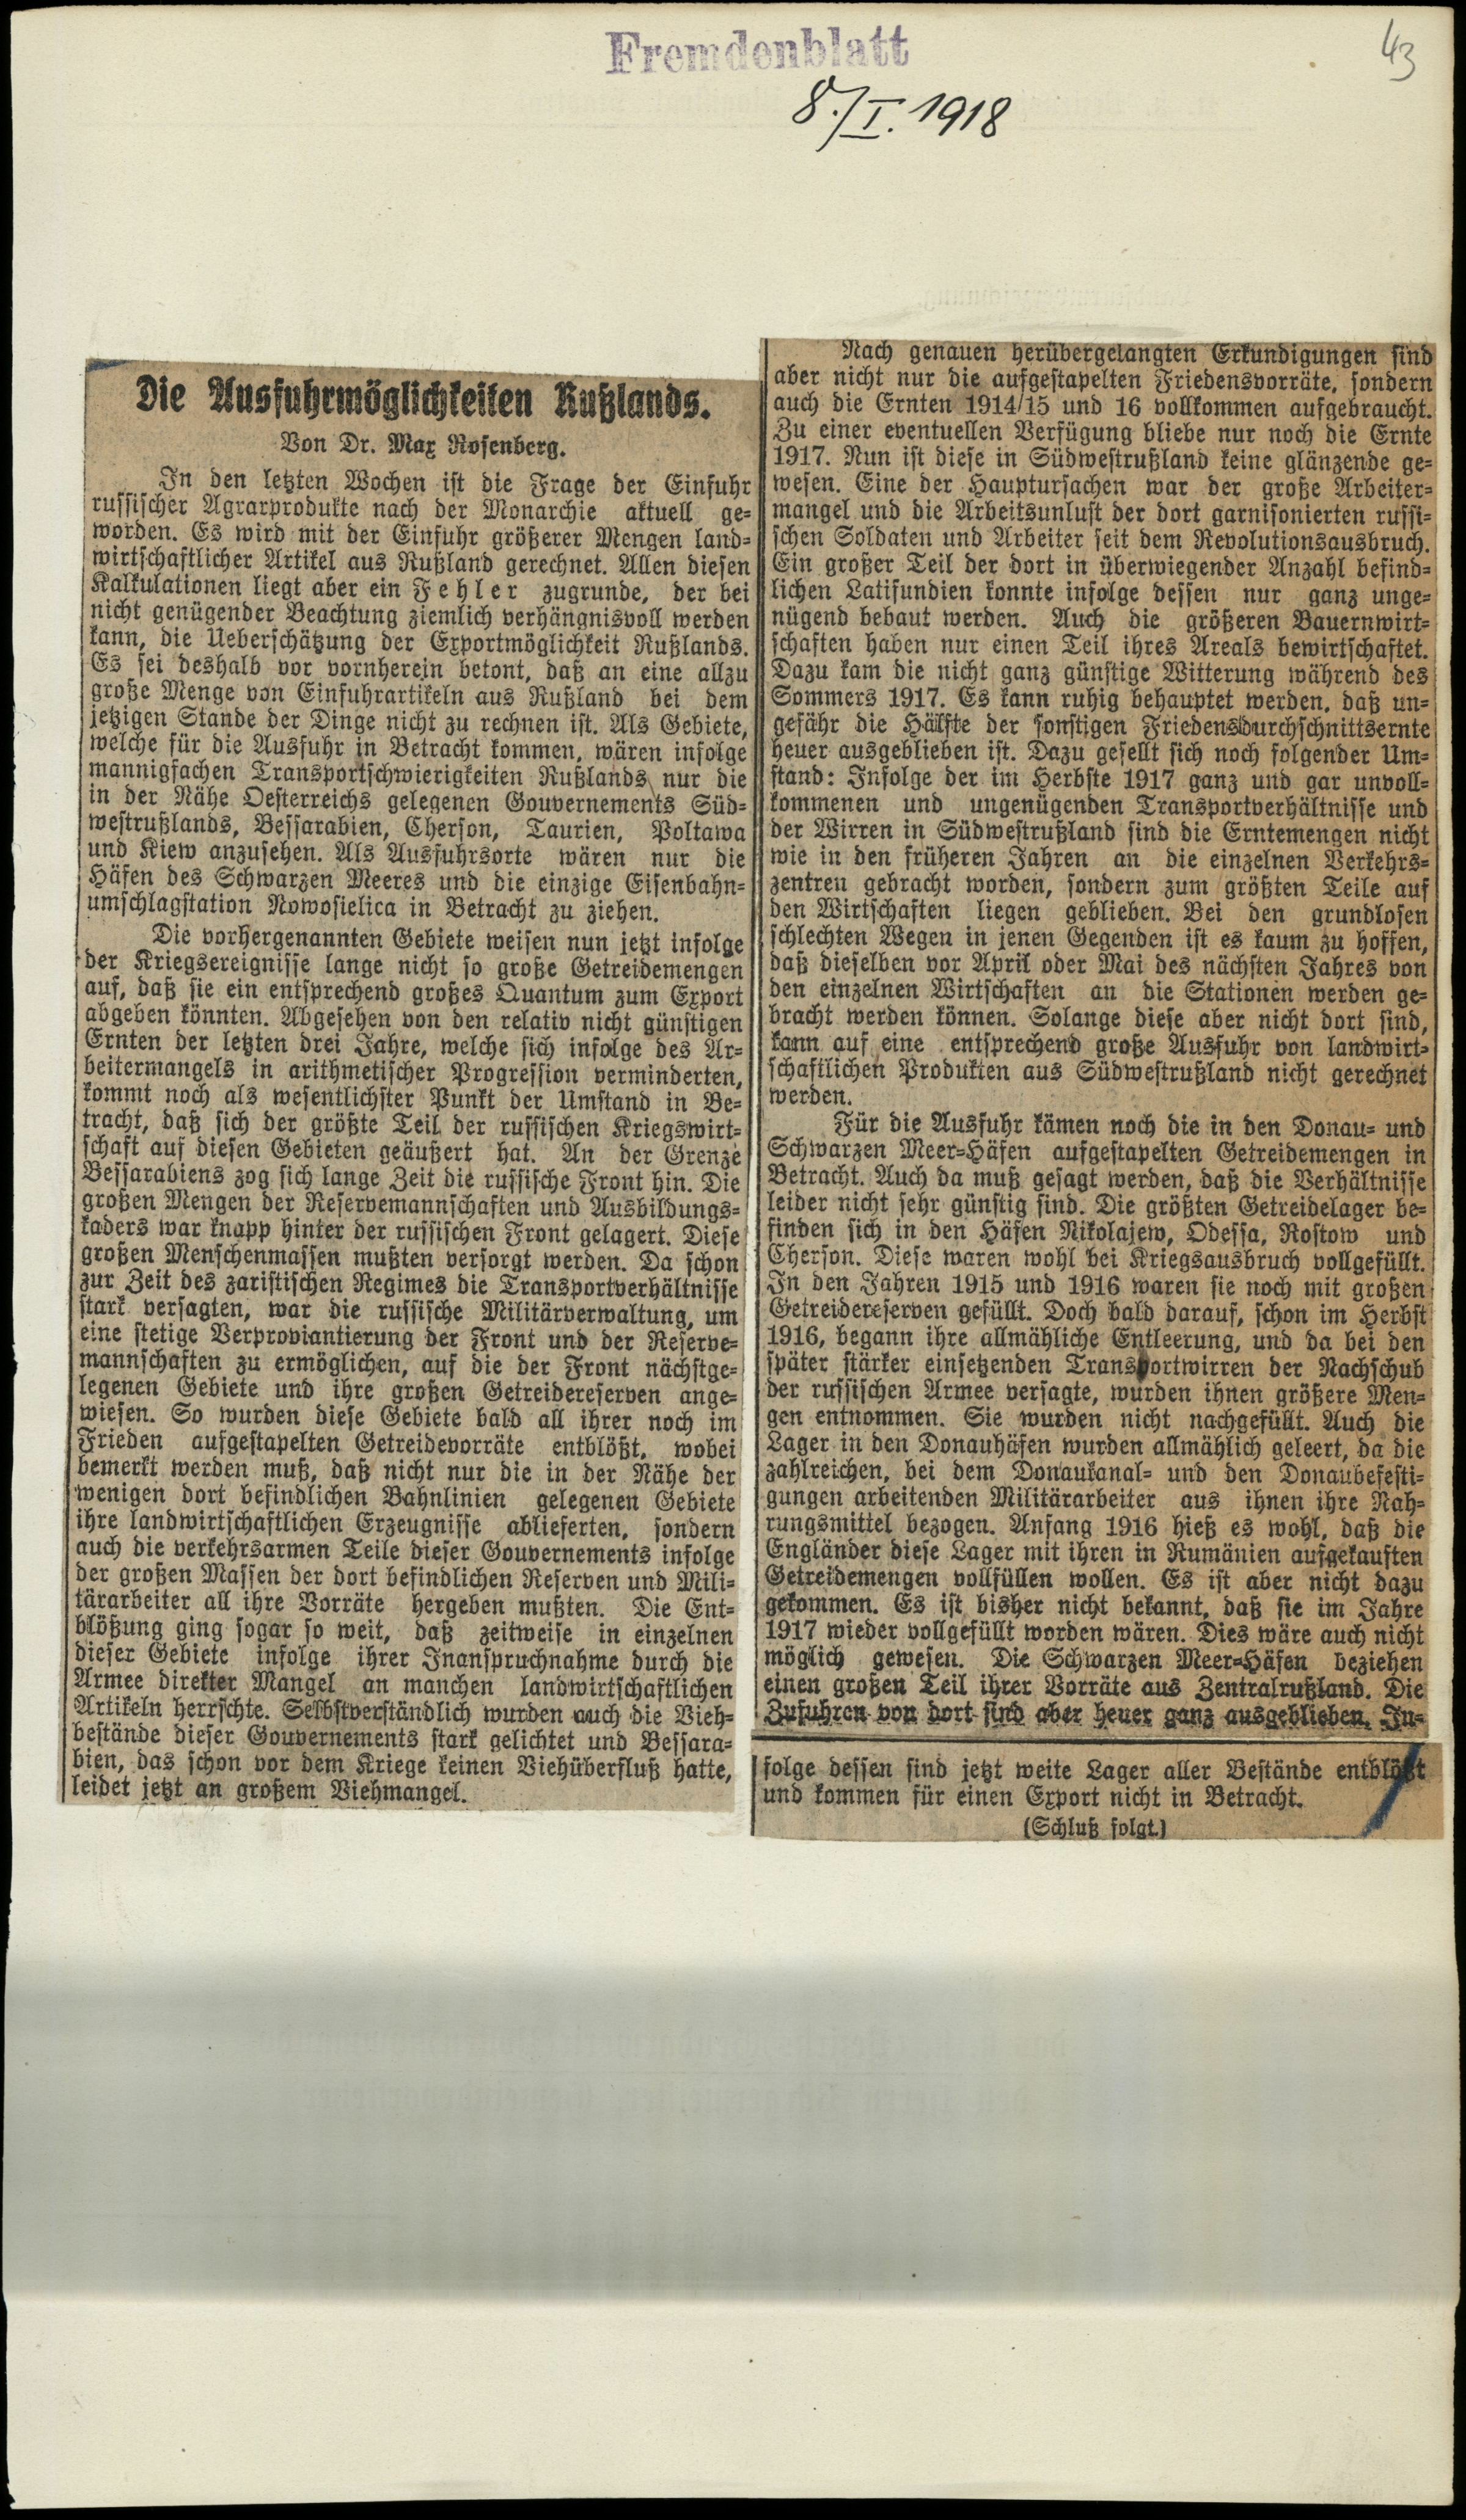 Fremdenblatt
43
8./I. 1918
Die Ausfuhrmöglichkeiten Rußlands.
Von Dr. Max Rosenberg.
In den letzten Wochen ist die Frage der Einfuhr
russischer Agrarprodukte nach der Monarchie aktuell ge-
worden. Es wird mit der Einfuhr größerer Mengen land-
wirtschaftlicher Artikel aus Rußland gerechnet. Allen diesen
Kalkulationen liegt aber ein Fehler zugrunde, der bei
nicht genügender Beachtung ziemlich verhängnisvoll werden
kann, die Ueberschätzung der Exportmöglichkeit Rußlands.
Es sei deshalb vor vornherein betont, daß an eine allzu
große Menge von Einfuhrartikeln aus Rußland bei dem
jetzigen Stande der Dinge nicht zu rechnen ist. Als Gebiete,
welche für die Ausfuhr in Betracht kommen, wären infolge
mannigfachen Transportschwierigkeiten Rußlands nur die
in der Nähe Oesterreichs gelegenen Gouvernements Süd-
westrußlands, Bessarabien, Cherson, Taurien, Poltawa
und Kiew anzusehen. Als Ausfuhrsorte wären nur die
Häfen des Schwarzen Meeres und die einzige Eisenbahn-
umschlagstation Nowosielica in Betracht zu ziehen.
Die vorhergenannten Gebiete weisen nun jetzt infolge
der Kriegsereignisse lange nicht so große Getreidemengen
auf, daß sie ein entsprechend großes Quantum zum Export
abgeben könnten. Abgesehen von den relativ nicht günstigen
Ernten der letzten drei Jahre, welche sich infolge des Ar-
beitermangels in arithmetischer Progression verminderten,
kommt noch als wesentlichster Punkt der Umstand in Be-
tracht, daß sich der größte Teil der russischen Kriegswirt-
schaft auf diesen Gebieten geäußert hat. An der Grenze
Bessarabiens zog sich lange Zeit die russische Front hin. Die
großen Mengen der Reservemannschaften und Ausbildungs-
kaders war knapp hinter der russischen Front gelagert. Diese
großen Menschenmassen mußten versorgt werden. Da schon
zur Zeit des zaristischen Regimes die Transportverhältnisse
stark versagten, war die russische Militärverwaltung, um
eine stetige Verproviantierung der Front und der Reserve-
mannschaften zu ermöglichen, auf die der Front nächstge-
legenen Gebiete und ihre großen Getreidereserven ange-
wiesen. So wurden diese Gebiete bald all ihrer noch im
Frieden aufgestapelten Getreidevorräte entblößt, wobei
bemerkt werden muß, daß nicht nur die in der Nähe der
wenigen dort befindlichen Bahnlinien gelegenen Gebiete
ihre landwirtschaftlichen Erzeugnisse ablieferten, sondern
auch die verkehrsarmen Teile dieser Gouvernements infolge
der großen Massen der dort befindlichen Reserven und Mili-
tärarbeiter all ihre Vorräte hergeben mußten. Die Ent-
blößung ging sogar so weit, daß zeitweise in einzelnen
dieser Gebiete infolge ihrer Inanspruchnahme durch die
Armee direkter Mangel an manchen landwirtschaftlichen
Artikeln herrschte. Selbstverständlich wurden auch die Vieh-
bestände dieser Gouvernements stark gelichtet und Bessara-
bien, das schon vor dem Kriege keinen Viehüberfluß hatte,
leidet jetzt an großem Viehmangel.
Nach genauen herübergelangten Erkundigungen sind
aber nicht nur die aufgestapelten Friedensvorräte, sondern
auch die Ernten 1914/15 und 16 vollkommen aufgebraucht.
Zu einer eventuellen Verfügung bliebe nur noch die Ernte
1917. Nun ist diese in Südwestrußland keine glänzende ge-
wesen. Eine der Hauptursachen war der große Arbeiter-
mangel und die Arbeitsunlust der dort garnisonierten russi-
schen Soldaten und Arbeiter seit dem Revolutionsausbruch.
Ein großer Teil der dort in überwiegender Anzahl befind-
lichen Latifundien konnte infolge dessen nur ganz unge-
nügend bebaut werden. Auch die größeren Bauernwirt-
schaften haben nur einen Teil ihres Areals bewirtschaftet.
Dazu kam die nicht ganz günstige Witterung während des
Sommers 1917. Es kann ruhig behauptet werden, daß un-
gefähr die Hälfte der sonstigen Friedensdurchschnittsernte
heuer ausgeblieben ist. Dazu gesellt sich noch folgender Um-
stand: Infolge der im Herbste 1917 ganz und gar unvoll-
kommenen und ungenügenden Transportverhältnisse und
der Wirren in Südwestrußland sind die Erntemengen nicht
wie in den früheren Jahren an die einzelnen Verkehrs-
zentren gebracht worden, sondern zum größten Teile auf
den Wirtschaften liegen geblieben. Bei den grundlosen
schlechten Wegen in jenen Gegenden ist es kaum zu hoffen,
daß dieselben vor April oder Mai des nächsten Jahres von
den einzelnen Wirtschaften an die Stationen werden ge-
bracht werden können. Solange diese aber nicht dort sind,
kann auf eine entsprechend große Ausfuhr von landwirt-
schaftlichen Produkten aus Südwestrußland nicht gerechnet
werden.
Für die Ausfuhr kämen noch die in den Donau- und
Schwarzen Meer-Häfen aufgestapelten Getreidemengen in
Betracht. Auch da muß gesagt werden, daß die Verhältnisse
leider nicht sehr günstig sind. Die größten Getreidelager be-
finden sich in den Häfen Nikolajew, Odessa, Rostow und
Cherson. Diese waren wohl bei Kriegsausbruch vollgefüllt.
In den Jahren 1915 und 1916 waren sie noch mit großen
Getreidereserven gefüllt. Doch bald darauf, schon im Herbst
1916, begann ihre allmähliche Entleerung, und da bei den
später stärker einsetzenden Transportwirren der Nachschub
der russischen Armee versagte, wurden ihnen größere Men-
gen entnommen. Sie wurden nicht nachgefüllt. Auch die
Lager in den Donauhäfen wurden allmählich geleert, da die
zahlreichen, bei dem Donaukanal- und den Donaubefesti-
gungen arbeitenden Militärarbeiter aus ihnen ihre Nah-
rungsmittel bezogen. Anfang 1916 hieß es wohl, daß die
Engländer diese Lager mit ihren in Rumänien aufgekauften
Getreidemengen vollfüllen wollen. Es ist aber nicht dazu
gekommen. Es ist bisher nicht bekannt, daß sie im Jahre
1917 wieder vollgefüllt worden wären. Dies wäre auch nicht
möglich gewesen. Die Schwarzen Meer-Häfen beziehen
einen großen Teil ihrer Vorräte aus Zentralrußland. Die
Zufuhren von dort sind aber heuer ganz ausgeblieben. In-
folge dessen sind jetzt weite Lager aller Bestände entblößt
und kommen für einen Export nicht in Betracht.
(Schluß folgt.)